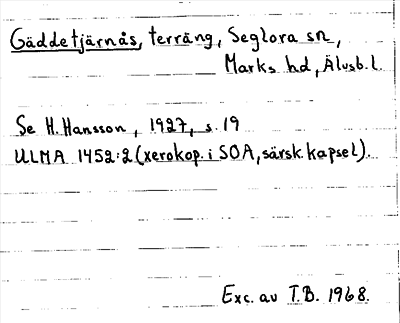 Gäddetjärnås, terräng, Seglora sn,
Marks hd, Älvsb.l.
Se H. Hansson, 1927, s. 19
ULMA 1452:2 (xerokop. i SOA, särsk. kapsel).
Exc. av T.B. 1968.